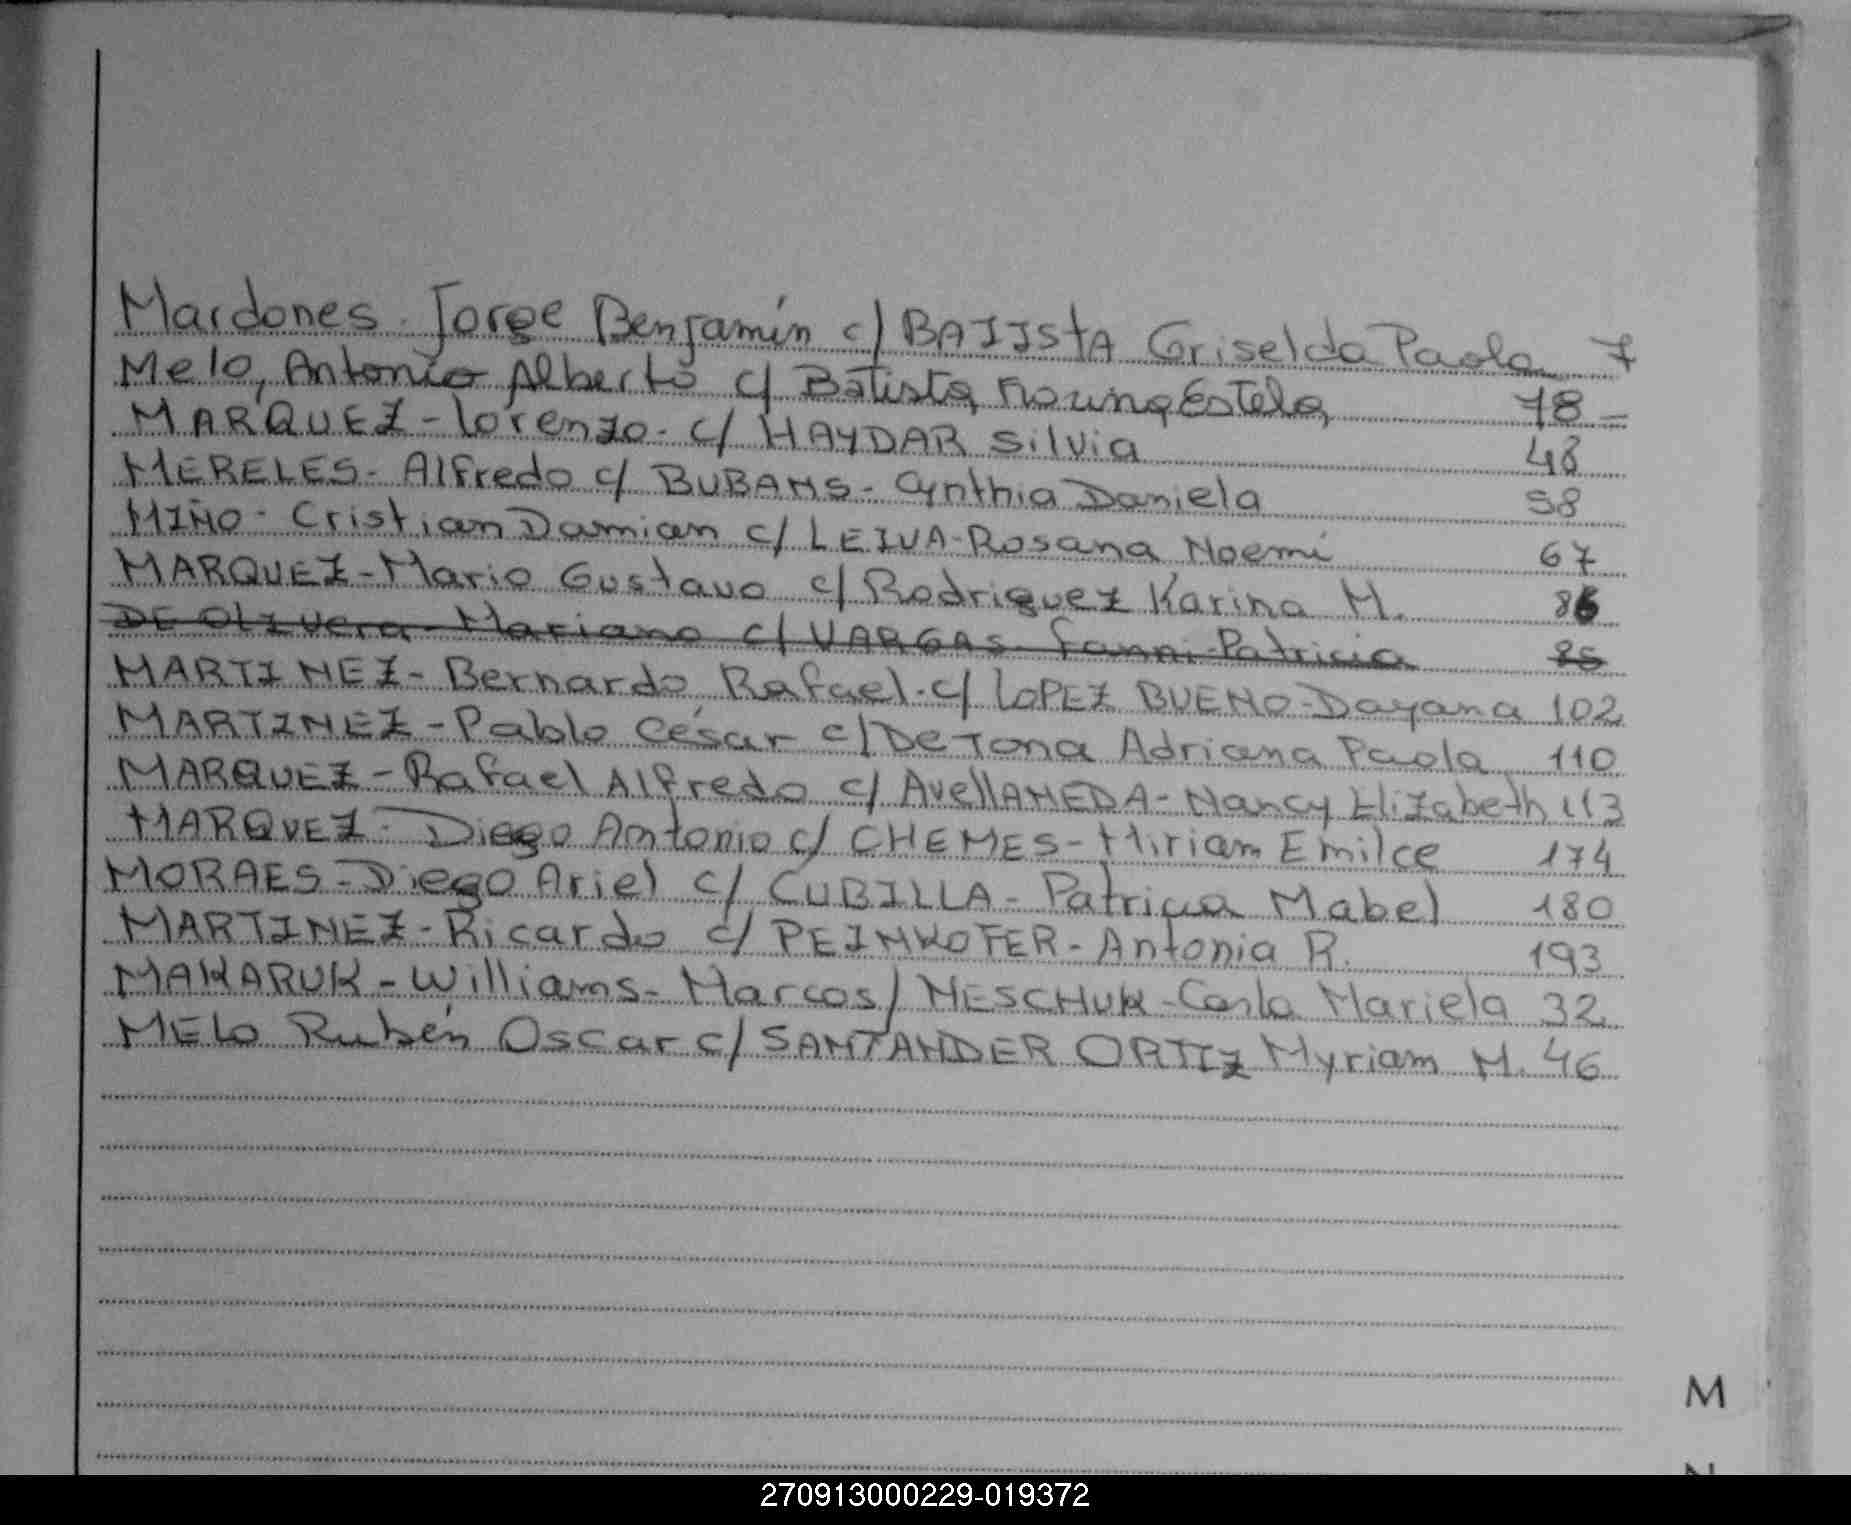 Mardones. Jorge Benjamín c/ BATISTA Griselda Paola 7
Melo, Antonio Alberto c/ Batista Estela 78
MARQUEZ - lorenzo - c/ HAYDAR silvia 48
MERELES - Alfredo c/ BUBANS - Cynthia Daniela 58
MIÑO - Cristian Damian c/ LEIVA - Rosana Noemí 67
MARQUEZ - Mario Gustavo c/ Rodriguez Karina M. 86
DE Olivera - Mariano c/ VARGAS - Fanni Patricia 85
MARTINEZ - Bernardo Rafael - c/ LOPEZ BUENO - Dayana 102
MARTINEZ - Pablo César c/ De Tona Adriana Paola 110
MARQUEZ - Rafael Alfredo c/ AvellANEDA - Nancy Elizabeth 113
MARQUEZ - Diego Antonio c/ CHEMES - Miriam Emilce 174
MORAES - Diego Ariel c/ CUBILLA - Patricia Mabel 180
MARTINEZ - Ricardo c/ PEINKOFER - Antonia R. 193
MAKARUK - Williams - Marcos / NESCHUK - Carla Mariela 32
MELO Rubén Oscar c/ SANTANDER ORTIZ Myriam M. 46
M
270913000229-019372